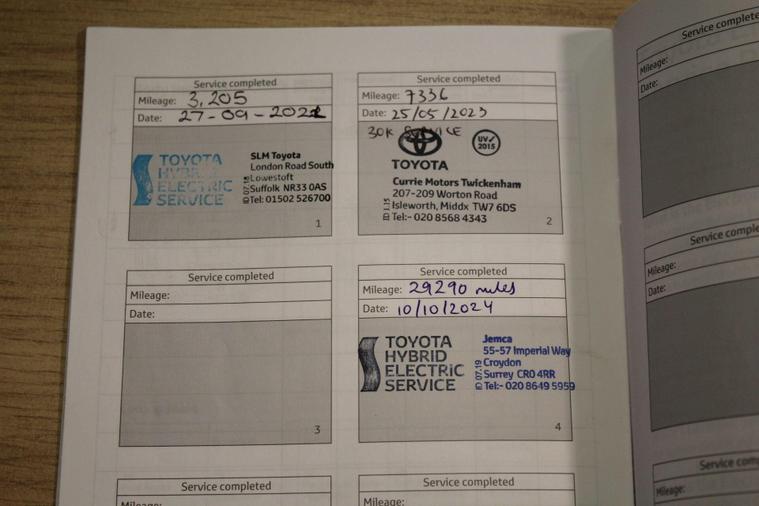 Service completed
Mileage: 3,205
Date: 27-09-2022
TOYOTA
HYBRID
ELECTRIC
SERVICE
SLM Toyota
London Road South
Lowestoft
Suffolk NR33 0AS
Tel: 01502 526700
07.18
1
Service completed
Mileage: 7336
Date: 25/05/2023
30K SERVICE
UV✓
2015
TOYOTA
Currie Motors Twickenham
207-209 Worton Road
Isleworth, Middx TW7 6DS
Tel:- 020 8568 4343
2
Service completed
Mileage:
Date:
3
Service completed
Mileage: 29290 miles
Date: 10/10/2024
TOYOTA
HYBRID
ELECTRIC
SERVICE
Jemca
55-57 Imperial Way
Croydon
Surrey CR0 4RR
Tel:- 020 8649 5959
07.19
4
Service completed
Mileage:
Service completed
Mileage:
Service completed
Mileage:
Date:
Service comple
Mileage:
Date:
Service com
Mileage: